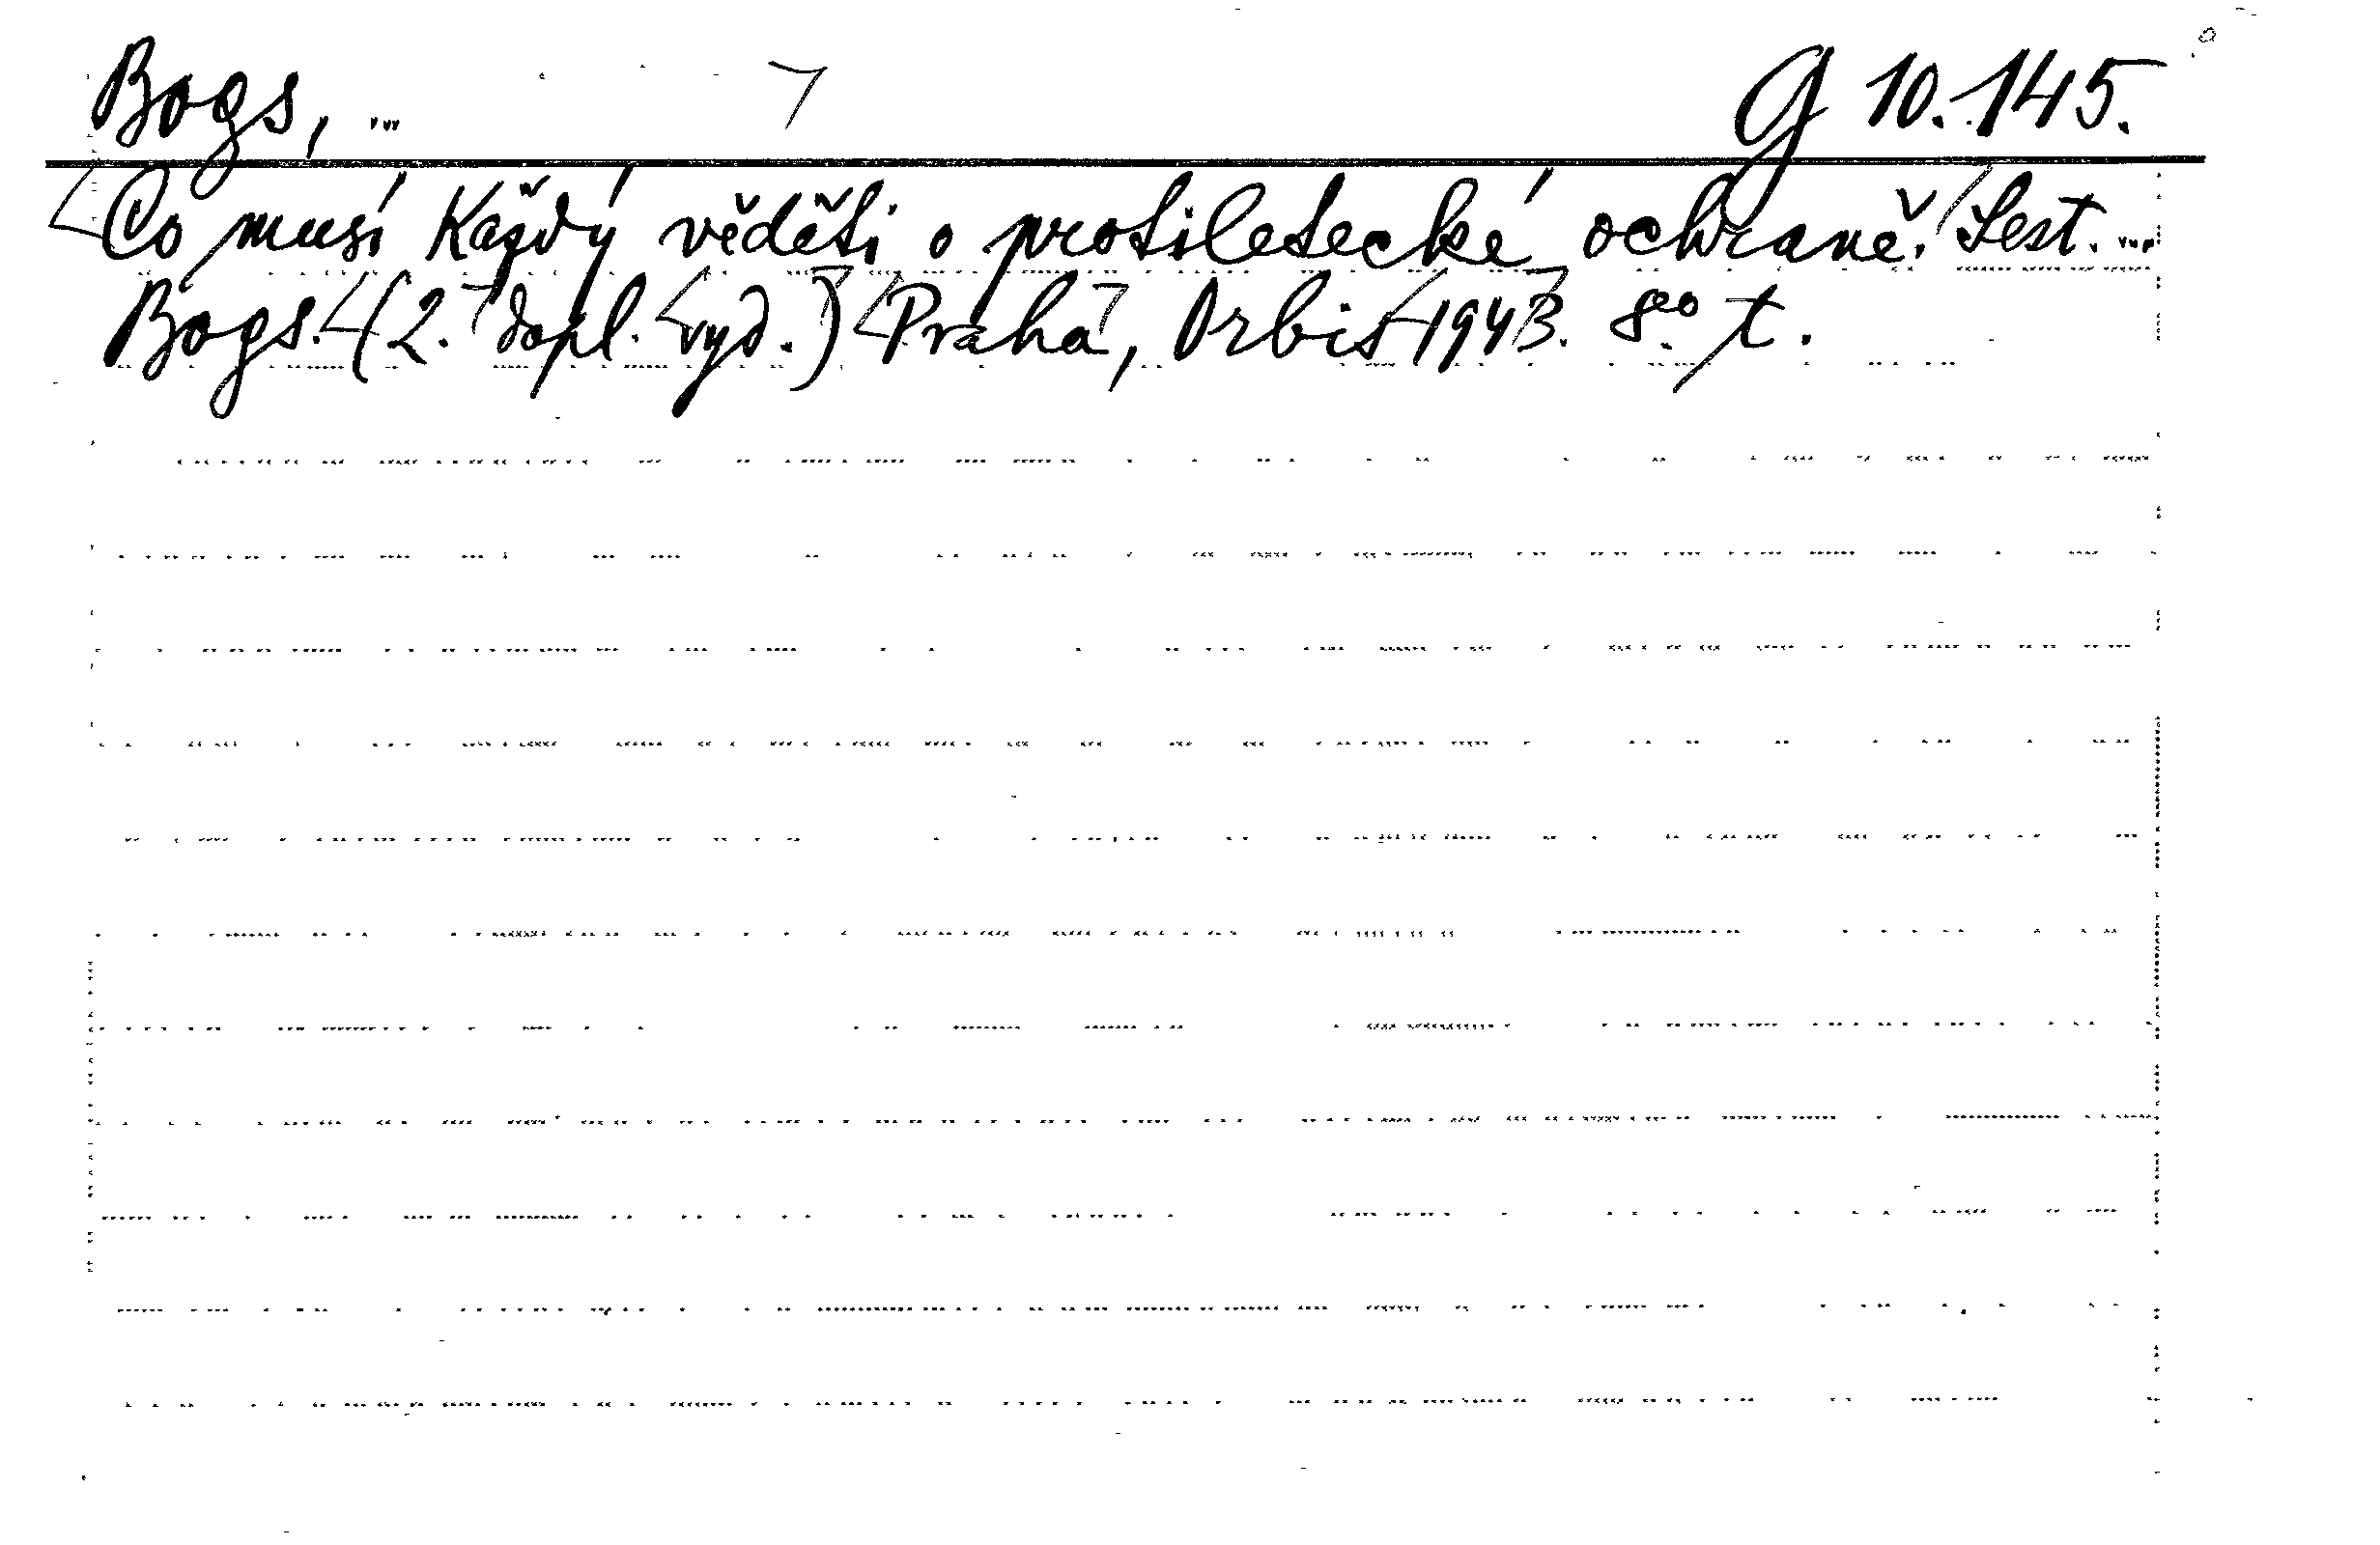 Bogs, ... G 10.145.
Co musí každý věděti o protiletecké ochraně. Sest. ...
Bogs. (2. dopl. vyd.) Praha, Orbis 1943. 8° t.